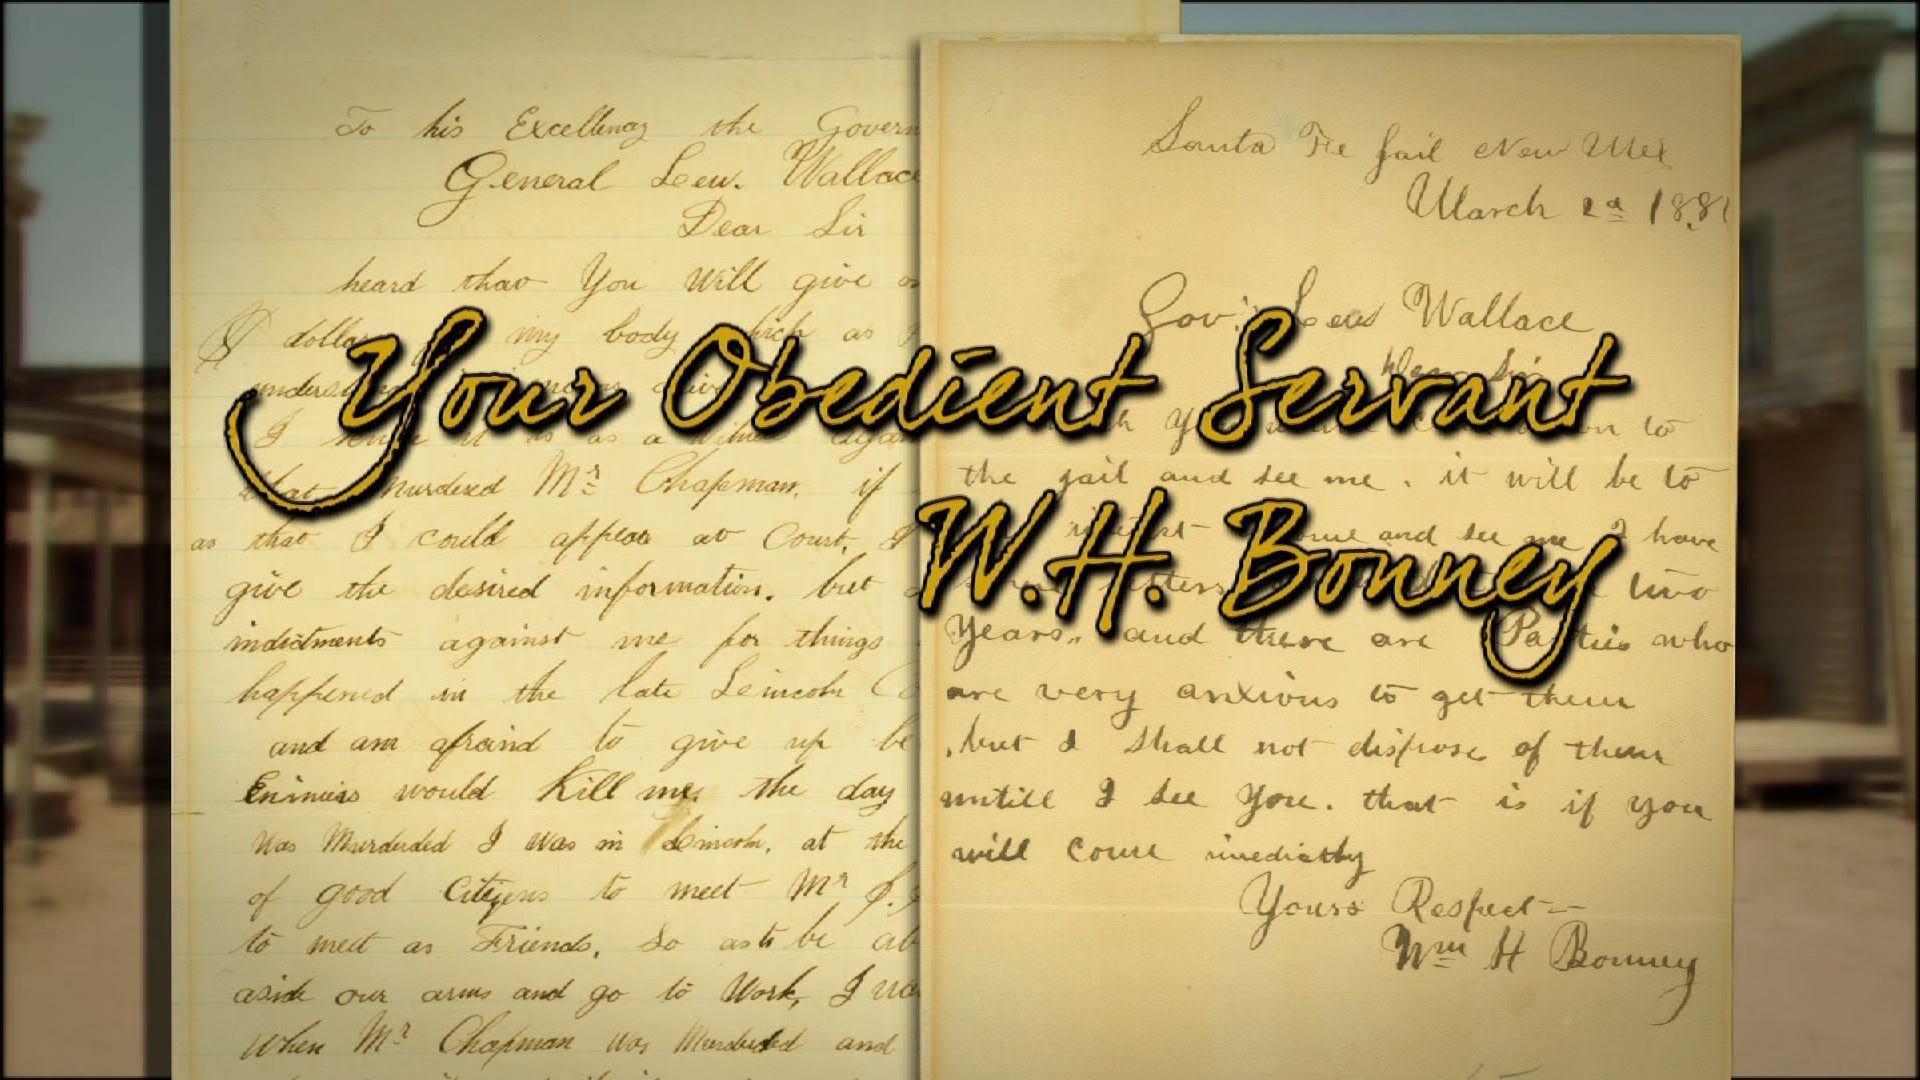 To his Excellency the Govern
General Lew. Wallace
Dear Sir
heard that You Will give on
dolla my body hich as
unders
I it is as a witnes again
that murdered Mr Chapman. if
as that I could appear at Court, I
give the desired information. but
indictments against me for things
happened in the late Lincoln Co
and am afraind to give up be
Enimies would Kill me. the day
was Murderded I was in Lincoln, at the
of good Citizens to meet Mr J.
to meet as Friends, So as to be ab
aside our arms and go to Work, I wa
When Mr Chapman was Murderded and
Santa Fe Jail New Mex
March 2d 1881
Gov. Lew Wallace
Dear Sir
h You on to
the jail and see me. it will be to
ome and see me I have
two
Years,, and there are Parties who
are very anxious to get them
, but I shall not dispose of them
untill I see You. that is if you
will come imediatly
Yours Respect
Wm H Bonney
Your Obedient Servant
W.H. Bonney